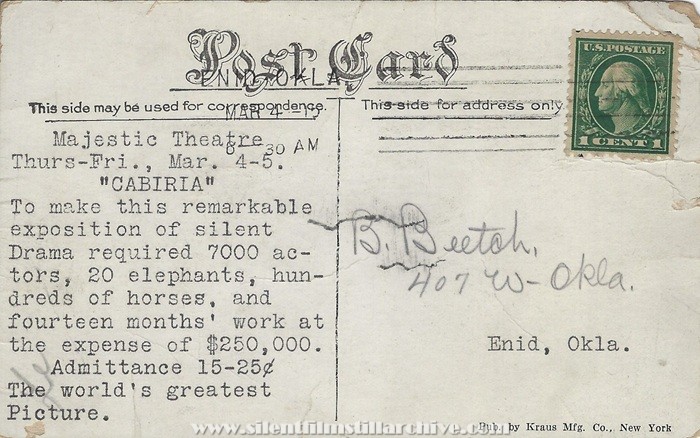 Post Card
ENID, OKLA
MAR 4
8 30 AM
U.S. POSTAGE
1 CENT 1
This side may be used for correspondence.
This side for address only
Majestic Theatre
Thurs-Fri., Mar. 4-5.
"CABIRIA"
To make this remarkable
exposition of silent
Drama required 7000 ac-
tors, 20 elephants, hun-
dreds of horses, and
fourteen months' work at
the expense of $250,000.
Admittance 15-25¢
The world's greatest
Picture.
B. Beetch,
407 W- Okla.
Enid, Okla.
Pub. by Kraus Mfg. Co., New York
www.silentfilmstillarchive.com